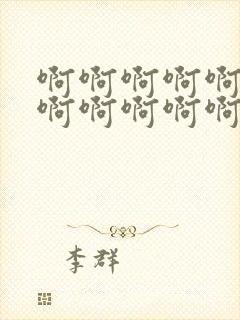 啊啊啊啊啊
啊啊啊啊啊
李群